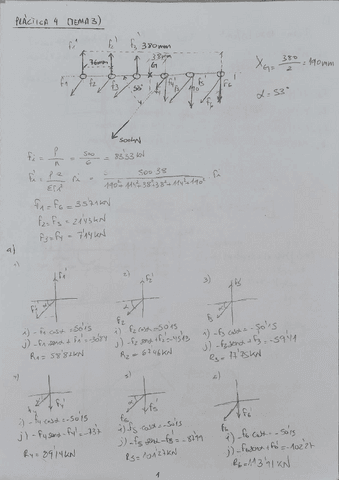 PRÁCTICA 4 (TEMA 3)
f1' f2' f3' 380mm
76mm 38mm
X_G = 380/2 = 190mm
f1 f2 f3 G f4' f5' f6'
53º
α = 53º
500kN
fi = P/n = 500/6 = 83'33 kN
fi' = P·e/Σri² ri = 500·38/190²+114²+38²+38²+114²+190² ri
f1 = f6 = 35'71 kN
f2 = f5 = 21'43 kN
f3 = f4 = 7'14 kN
a)
1) 2) 3)
i) -f1 cosα = -50'15
j) -f1 senα + f1' =
R1 = 58'82 kN
i) -f2 cosα = -50'15
j) -f2 senα + f2' = -45'13
R2 = 67'46 kN
i) -f3 cosα = -50'15
j) -f3 senα + f3' = -59'41
R3 = 77'75 kN
4) 5) 6)
i) -f4 cosα = -50'15
j) -f4 senα - f4' =
R4 = 89'14 kN
i) -f5 cosα = -50'15
j) -f5 senα - f5' =
R5 = 101'27 kN
i) -f6 cosα = -50'15
j) -f6 senα - f6' = -102'27
R6 = 113'91 kN
1